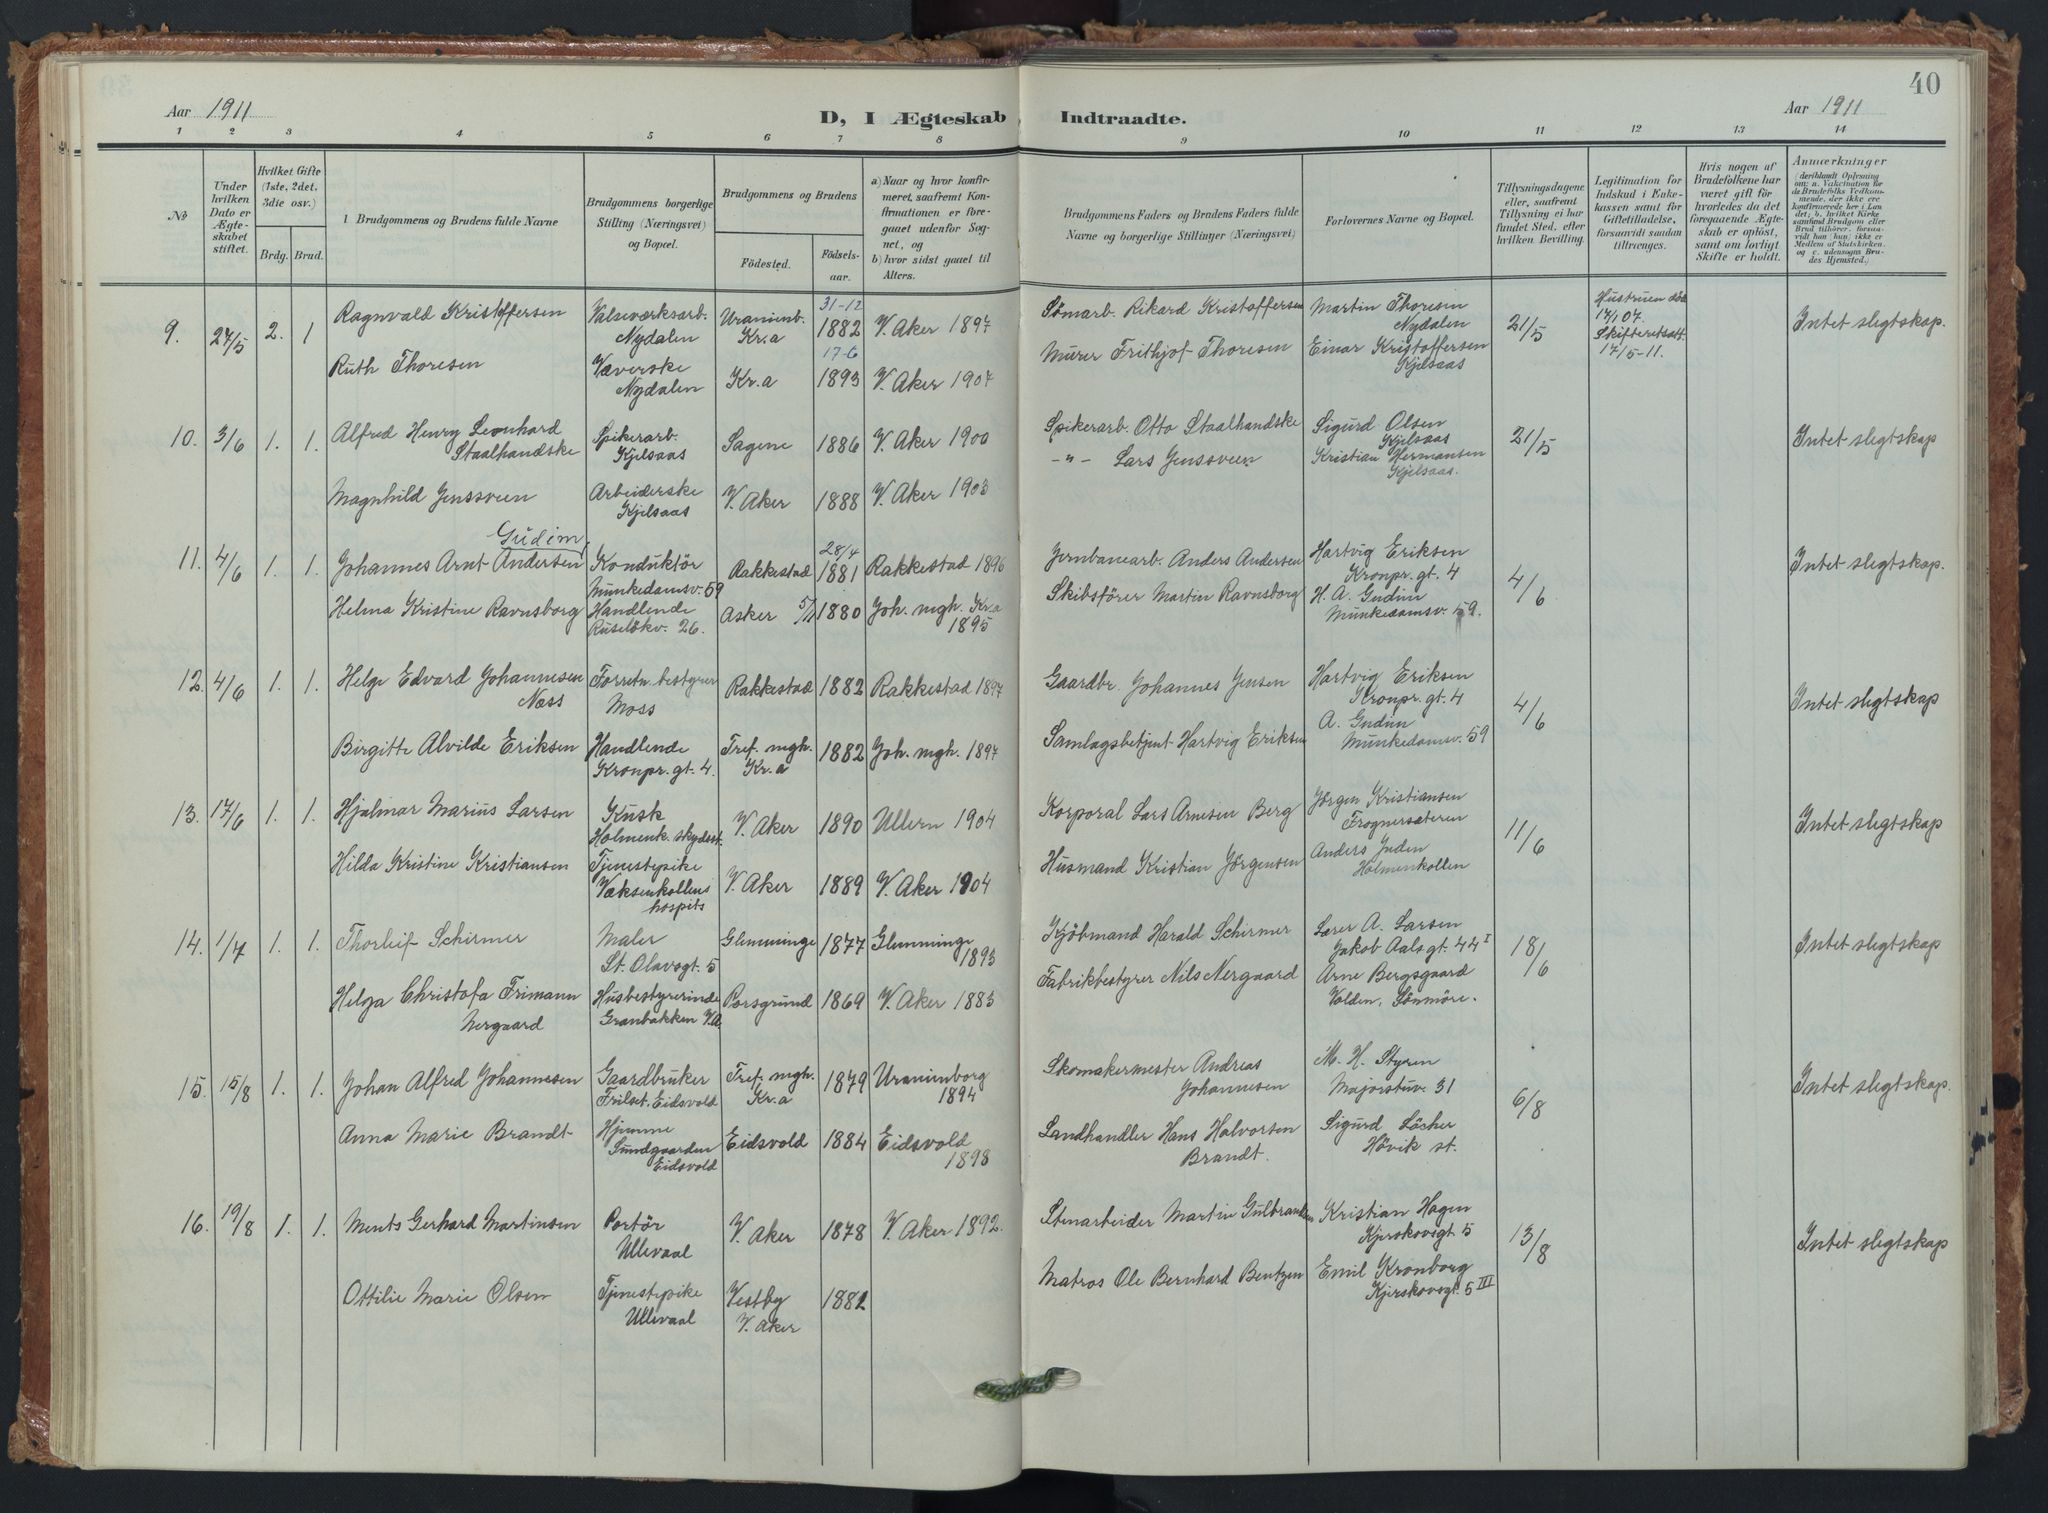 40
Aar 1911
D, I Ægteskab Indtraadte.
Aar 1911
1 2 3 4 5 6 7 8 9 10 11 12 13 14
No
Under hvilken Dato er Ægteskabet stiftet.
Hvilket Gifte (1ste, 2det, 3die osv.)
Brdg. Brud.
1 Brudgommens og Brudens fulde Navne
Brudgommens borgerlige Stilling (Næringsvei) og Bopæl.
Brudgommens og Brudens
Fødested.
Fødselsaar.
a) Naar og hvor konfirmeret, saafremt Konfirmationen er foregaaet udenfor Sognet, og
b) hvor sidst gaaet til Alters.
Brudgommens Faders og Brudens Faders fulde Navne og borgerlige Stillinger (Næringsvei)
Forlovernes Navne og Bopæl.
Tillysningsdagene eller, saafremt Tillysning ei har fundet Sted, efter hvilken Bevilling.
Legitimation for Indskud i Enkekassen samt for Giftetilladelse, forsaavidt saadan tiltrænges.
Hvis nogen af Brudefolkene har været gift før hvorledes da det foregaaende Ægteskab er opløst, samt om lovligt Skifte er holdt.
Anmærkninger
(deriblandt Oplysning om: a. Vakcination for de Brudefolks Vedkommende, der ikke ere konfirmerede her i Landet; b. hvilket Kirkesamfund Brudgom eller Brud tilhører, forsaavidt han (hun) ikke er Medlem af Statskirken, og c. udensogns Brudes Hjemsted.)
9. 27/5 2. 1 Ragnvald Kristoffersen Valseværksarb. Nydalen Uranienb. Kr.a 31-12 1882 V. Aker 1897 Sömarb. Rikard Kristoffersen Martin Thoresen Nydalen 21/5 Hustruen död 17/1 07. Skifteretsatt. 17/5-11. Intet slegtskap.
Ruth Thoresen Væverske Nydalen Kr.a 17-6 1893 V. Aker 1907 Murer Frithjof Thoresen Einar Kristoffersen Kjelsaas
10. 3/6 1. 1. Alfred Henry Leonhard Staalhandske Spikerarb. Kjelsaas Sagene 1886 V. Aker 1900 Spikerarb. Otto Staalhandske Sigurd Olsen Kjelsaas 21/5 Intet slegtskap
Magnhild Jenssveen Arbeiderske Kjelsaas V. Aker 1888 V. Aker 1903 -"- Lars Jenssveen Kristian Hermansen Kjelsaas.
11. 4/6 1. 1. Johannes Arnt Andersen Gudim Konduktör Munkedamsv. 59 Rakkestad 28/4 1881 Rakkestad 1896 Jernbanearb. Anders Andersen Hartvig Eriksen Kronpr. gt. 4 4/6 Intet slegtskap.
Helma Kristine Ravnsborg Handlende Ruselökv. 26. Asker 1880 Joh. mgh. Kr.a 1895 Skibsförer Martin Ravnsborg H. A. Gudim Munkedamsv. 59.
12. 4/6 1. 1. Helge Edvard Johannesen Næss Forretn. bestyrer Moss Rakkestad 1882 Rakkestad 1897 Gaardbr. Johannes Jensen Hartvig Eriksen Kronpr. gt. 4 4/6 Intet slegtskap
Birgitte Alvilde Eriksen Handlende Kronpr. gt. 4. Tref. mgh. Kr.a 1882 Joh. mgh. 1897 Samlagsbetjent Hartvig Eriksen A. Gudim Munkedamsv. 59
13. 17/6 1. 1. Hjalmar Marius Larsen Kusk Holmenk. skydsst. V. Aker 1890 Ullern 1904 Korporal Lars Arnesen Berg Jörgen Kristiansen Frognersæteren 11/6 Intet slegtskap
Hilda Kristine Kristiansen Tjenestepike Væksenkollens hospits V. Aker 1889 V. Aker 1904 Husmand Kristian Jörgensen Anders Juden Holmenkollen
14. 1/7 1. 1. Thorleif Schirmer Maler St. Olavsgt. 5 Glemminge 1877 Glemminge 1893 Kjöbmand Harald Schirmer Lærer A. Larsen Jakob Aalsgt. 44 I 18/6 Intet slegtskap
Helga Christofa Frimann Nergaard Husbestyrerinde Granbakken V.A. Porsgrund 1869 V. Aker 1883 Fabrikbestyrer Nils Nergaard Arne Bergsgaard Volden, Sönmöre.
15. 15/8 1. 1. Johan Alfred Johannesen Gaardbruker Frilset, Eidsvold Tref. mgh. Kr.a 1879 Uranienborg 1894 Skomakermester Andreas Johannesen M. H. Styren Majorstuv. 31 6/8 Intet slegtskap.
Anna Marie Brandt Hjemme Sundgaarden Eidsvold Eidsvold 1884 Eidsvold 1898 Landhandler Hans Halvorsen Brandt. Sigurd Löcher Hövik st.
16. 19/8 1. 1. Ments Gerhard Martinsen Portör Ullevaal V. Aker 1878 V. Aker 1892. Stenarbeider Martin Gulbrandsen Kristian Hagen Kjerskovsgt. 5 13/8 Intet slegtskap
Ottilie Marie Olsen Tjenestepike Ullevaal Vestby V. Aker 1882 Matros Ole Bernhard Bentzen Emil Kronborg Kjerskovsgt. 5 III